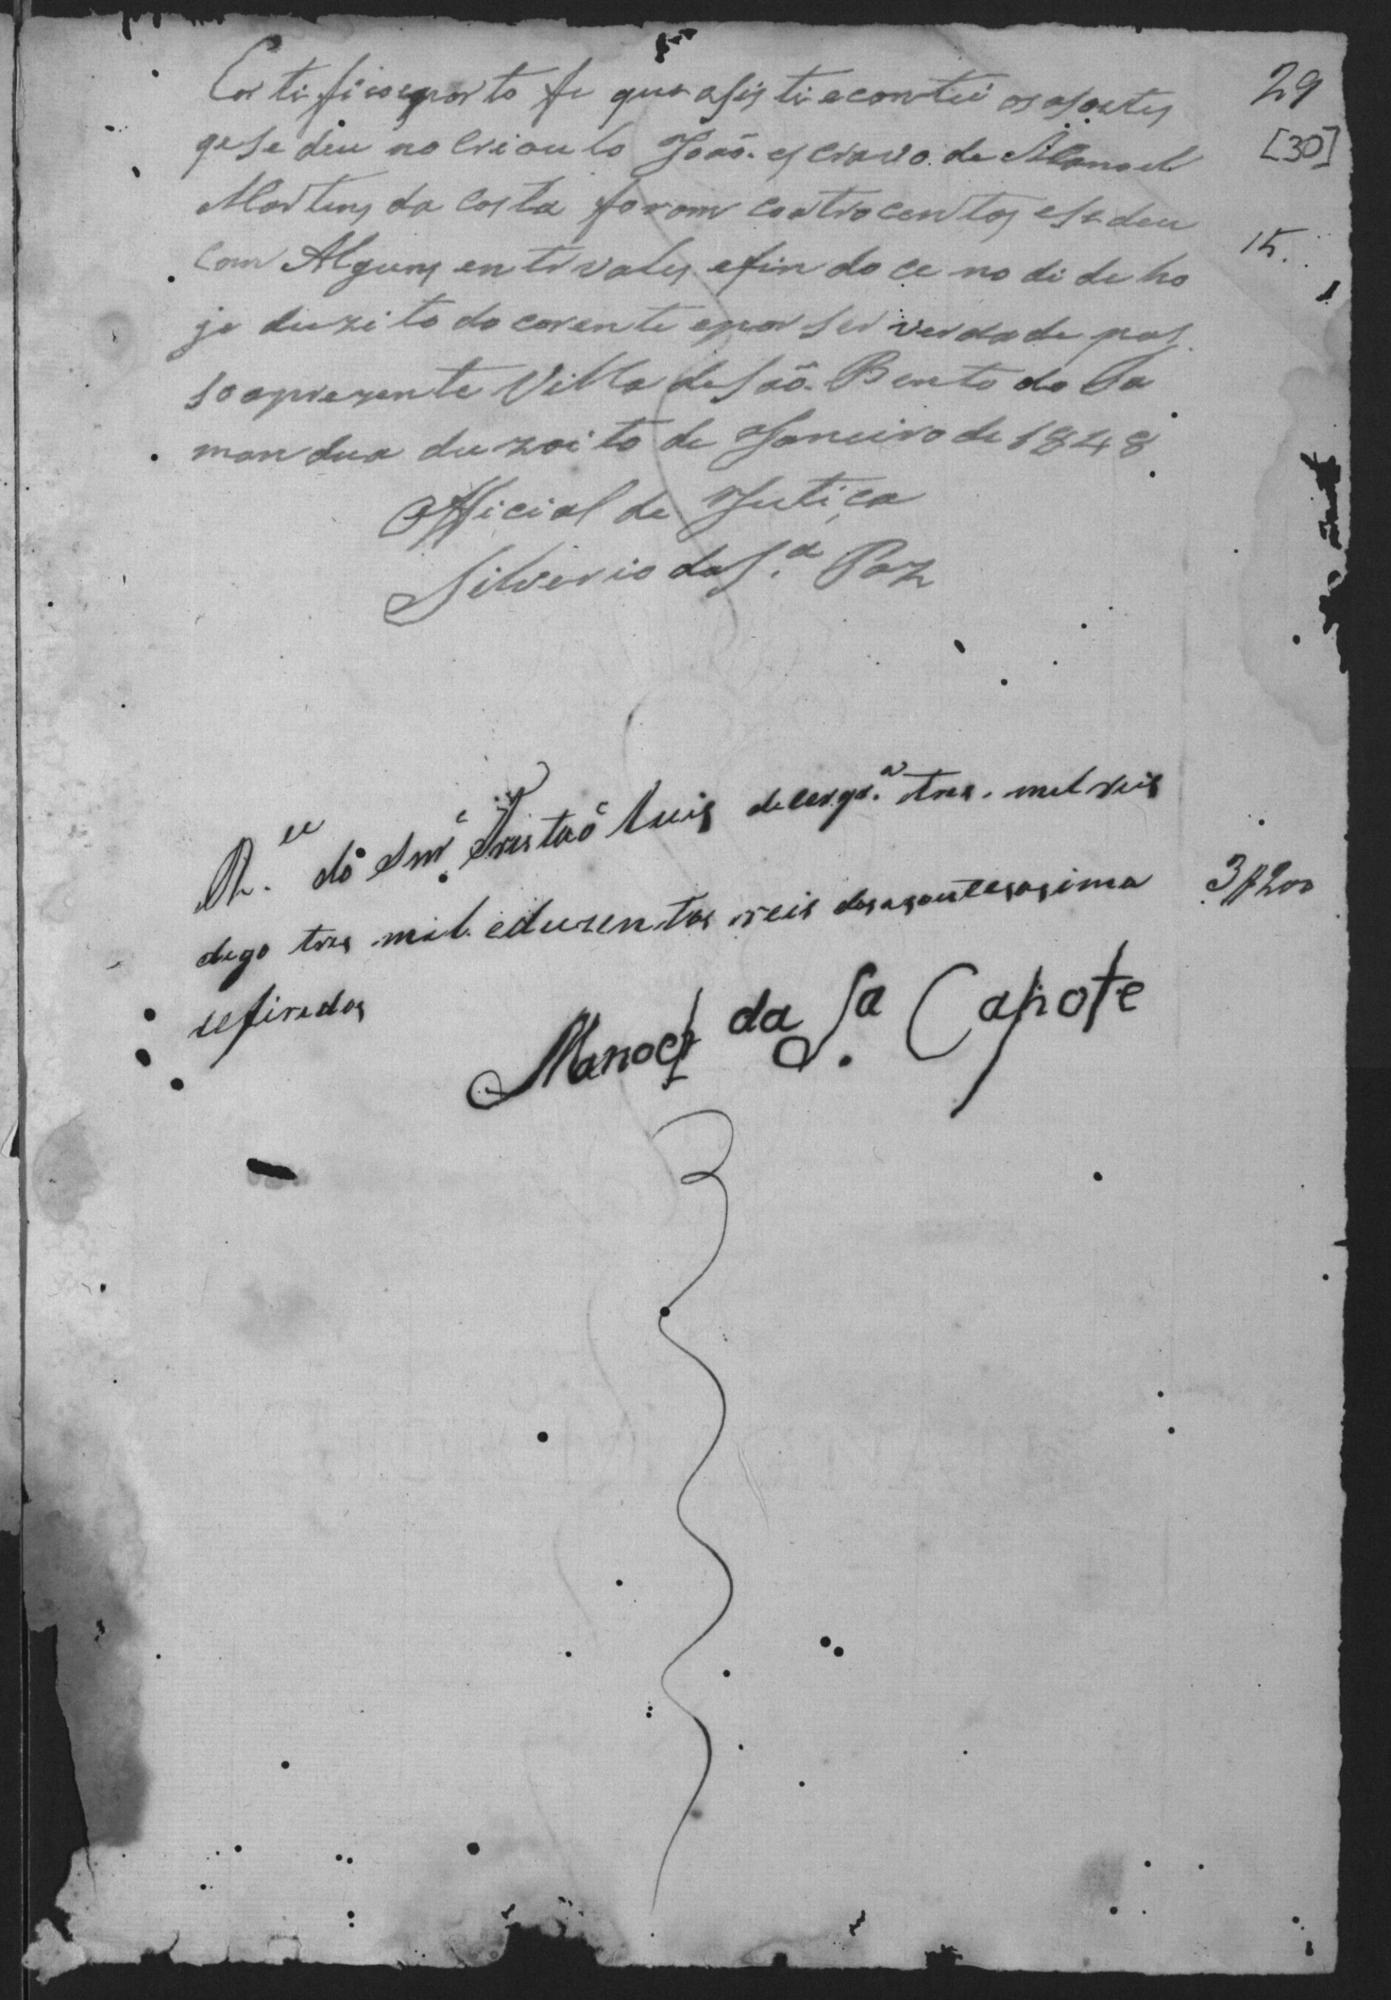 29
[30]
Certifico eporto fe que asisti econtei osasoutes
qesedeu no Crioulo João. escravo de Manoel
Martins da Costa foram coatrocentos esedeu
15.
com Alguns entrvales efindoce no di de ho
je dezito do corente epor ser verdade pas
so aprezente Villa de São. Bento do Ta
mandua dezoito de Janeiro de 1848
Official de Jutiça
Silverio da S.a Paz
R.ce do Snr Tristaõ Luis decerqr.a tres. mil reis
digo tres mil eduzentos reis dosasoutes asima
3$200
refiridos
Manoel da S.a Capote